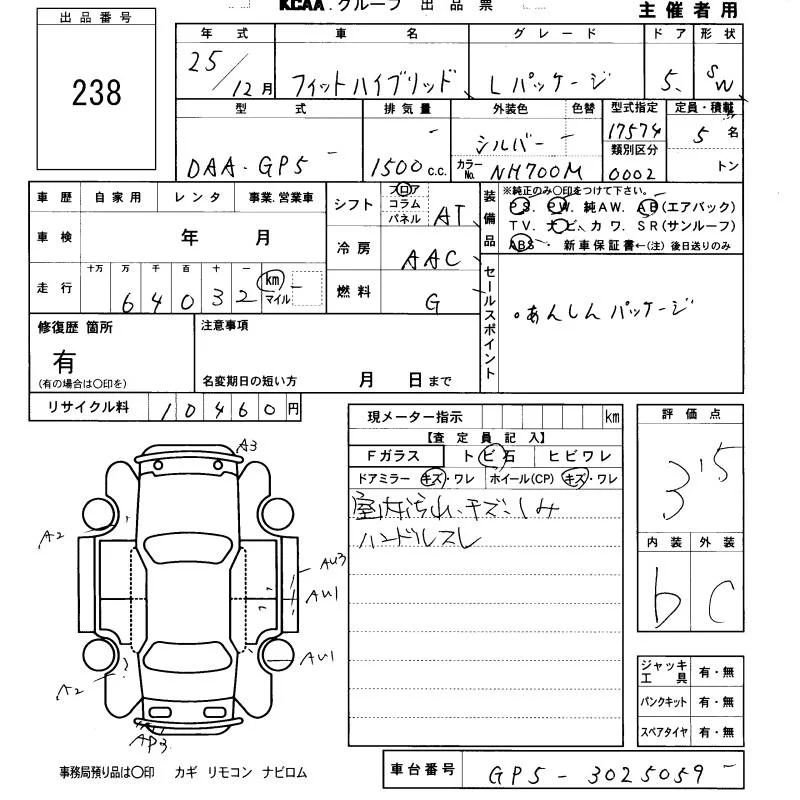 KCAA.グループ 出品票
主催者用
出品番号
238
年式 車名 グレード ドア 形状
25/12月 フィットハイブリッド Lパッケージ 5 SW
型式 排気量 外装色 色替 型式指定 定員・積載
DAA-GP5 1500c.c. シルバー 17574 5名
カラーNo. NH700M 類別区分 0002 トン
車歴 自家用 レンタ 事業.営業車
車検 年 月
走行 十万 万 千 百 十 一
64032 km マイル
シフト フロア コラム パネル AT
冷房 AAC
燃料 G
装備品
※純正のみ〇印をつけて下さい。
PS. PW. 純AW. AB(エアバック)
TV. ナビ. カワ. SR(サンルーフ)
ABS 新車保証書←(注) 後日送りのみ
セールスポイント
。あんしんパッケージ
修復歴 箇所
有
(有の場合は〇印を)
注意事項
名変期日の短い方 月 日まで
リサイクル料 10460円
現メーター指示 km
【査定員記入】
Fガラス トビ石 ヒビワレ
ドアミラー キズ・ワレ ホイール(CP) キズ・ワレ
室内汚れ、キズ、しみ
ハンドルスレ
評価点
3'5
内装 外装
b C
A3
A2
AU3
AU1
AU1
A2
AP3
ジャッキ工具 有・無
パンクキット 有・無
スペアタイヤ 有・無
事務局預り品は〇印 カギ リモコン ナビロム
車台番号 GP5-3025059